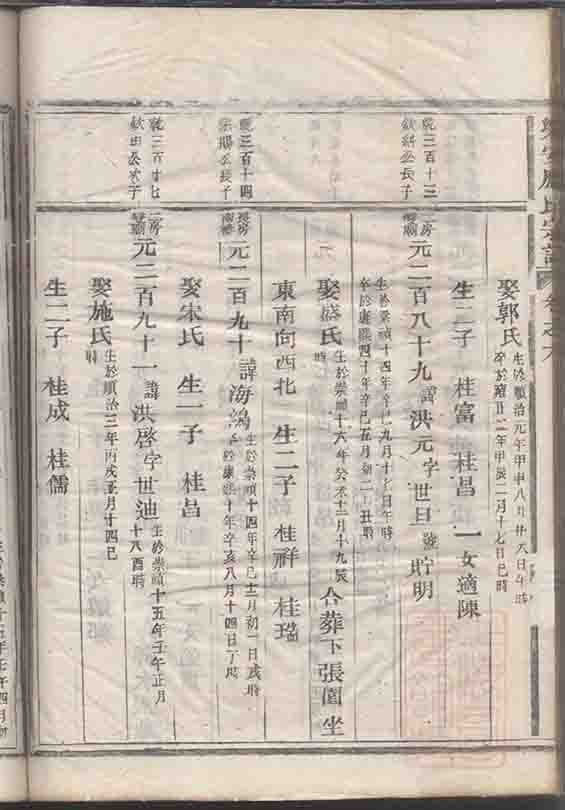 氏宗譜 卷之六
娶郭氏 生於順治元年甲申八月廿八日午時
二年甲辰二月十七日巳時
生二子 桂富 桂昌 一女適陳
乾三百十三
欽 公長子
二房
元二百八十九 諱洪元 字世旦 號貯明
生於崇禎十四年辛巳九月十七日午時
卒於康熙四十年辛巳五月初二日丑時
娶盛氏 生於崇禎十六年癸未十二月十九辰時 合葬下張園坐
東南向西北 生二子 桂祥 桂瑞
乾三百十四
公長子
長房
元二百九十 諱海鴻 生於崇禎十四年辛巳十二月初一日戌時
卒於康熙十年辛亥八月十四日丁時
娶宋氏 生一子 桂昌
乾三百廿七
欽田公次子
二房
元二百九十一 諱洪啓 字世迪 生於崇禎十五年壬午正月
十八酉時
娶施氏 生於順治三年丙戌正月十四巳
時
生二子 桂成 桂儒